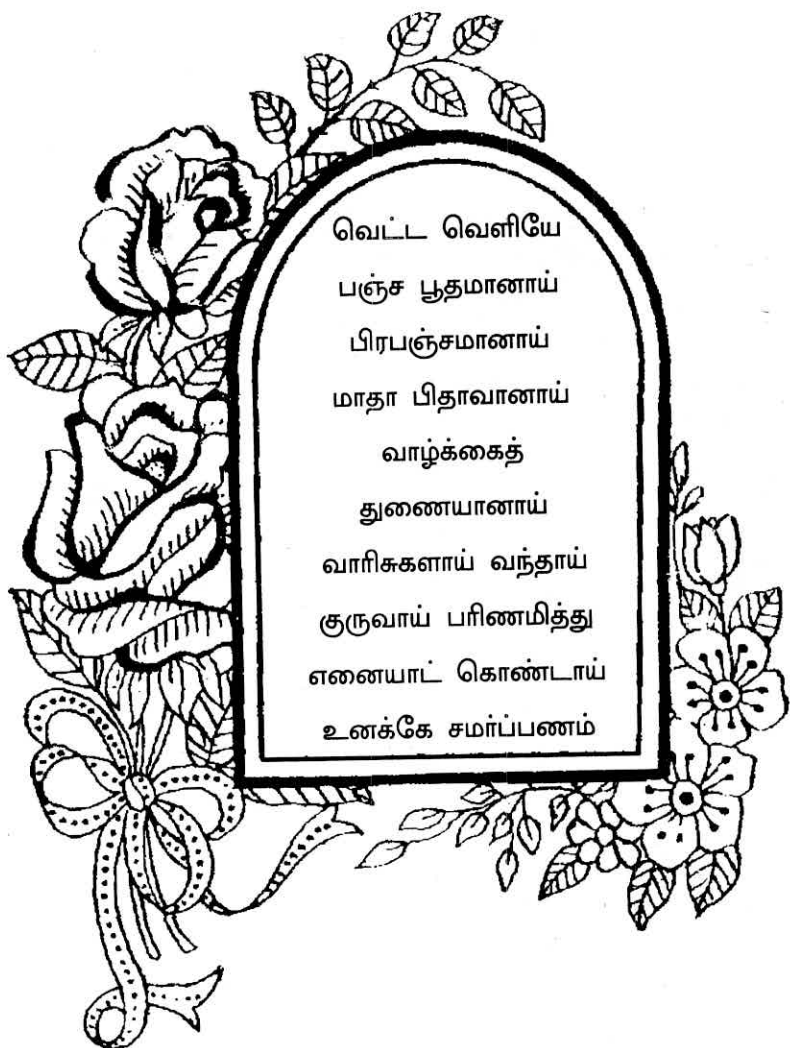 வெட்ட வெளியே
பஞ்ச பூதமானாய்
பிரபஞ்சமானாய்
மாதா பிதாவானாய்
வாழ்க்கைத்
துணையானாய்
வாரிசுகளாய் வந்தாய்
குருவாய் பரிணமித்து
எனையாட் கொண்டாய்
உனக்கே சமர்ப்பணம்